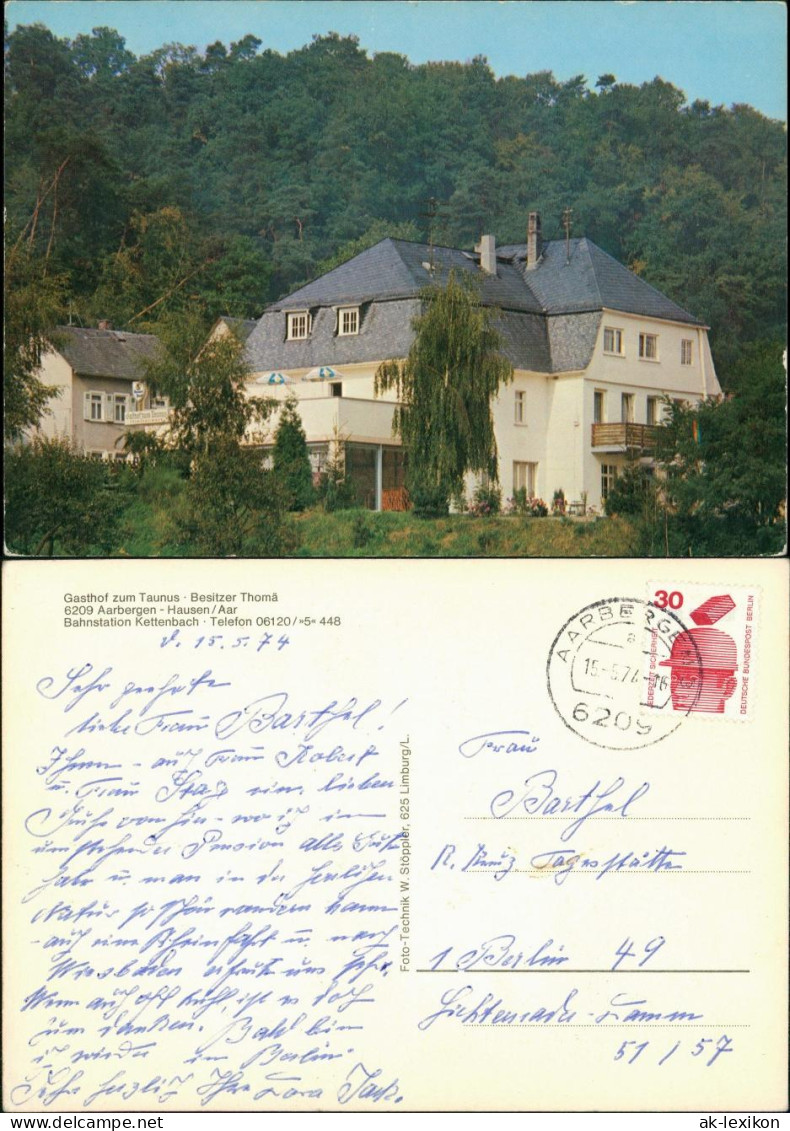 Gasthof zum Taunus
Gasthof zum Taunus · Besitzer Thomä
6209 Aarbergen - Hausen/Aar
Bahnstation Kettenbach · Telefon 06120/»5« 448
d. 15.5.74
Sehr geehrte
liebe Frau Barthel!
Ihnen - auch Frau Robert
u. Frau einen lieben
Gruß von hier - wo ich in
umstehender Pension alles Gute
habe u. man in der herrlichen
Natur so schön wandern kann
- auch eine Rheinfahrt u. nach
Wiesbaden erfreute uns sehr.
Wenn auch oft kühl, ist es doch
zum danken. Bald bin
ich wieder in Berlin.
Sehr herzlich Ihre Dora
Foto-Technik W. Stöppler, 625 Limburg/L.
AARBERGEN
a
15.-5.74-16
6209
30
JEDERZEIT SICHERHEIT
DEUTSCHE BUNDESPOST BERLIN
Frau
Barthel
R. Kreuz Tagesstätte
1 Berlin 49
Lichtenrade-Damm
51/57
ak-lexikon